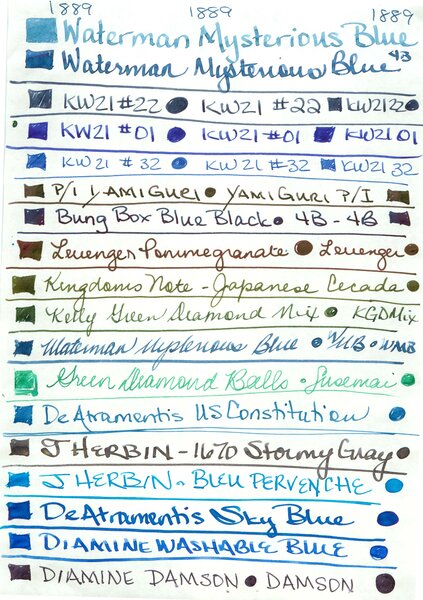 1889 1889 1889
Waterman Mysterious Blue
Waterman Mysterious Blue 4B
KW21 #22 KW21 #22 KW2122
KW21 #01 KW21 #01 KW21 01
KW21 #32 KW21 #32 KW21 32
P/I YAMIGURI YAMIGURI P/I
Bung Box Blue Black 4B - 4B
Levenger Pommegranate Levenger
Kingdoms Note - Japanese Cecada
Kelly Green Diamond Mix KGDMix
Waterman Mysterious Blue WMB WMB
Green Diamond Balls Susemai
De Atramentis US Constitution
J HERBIN - 1670 Stormy Gray
J HERBIN - BLEU PERVENCHE
De Atramentis Sky Blue
DIAMINE WASHABLE BLUE
DIAMINE DAMSON DAMSON